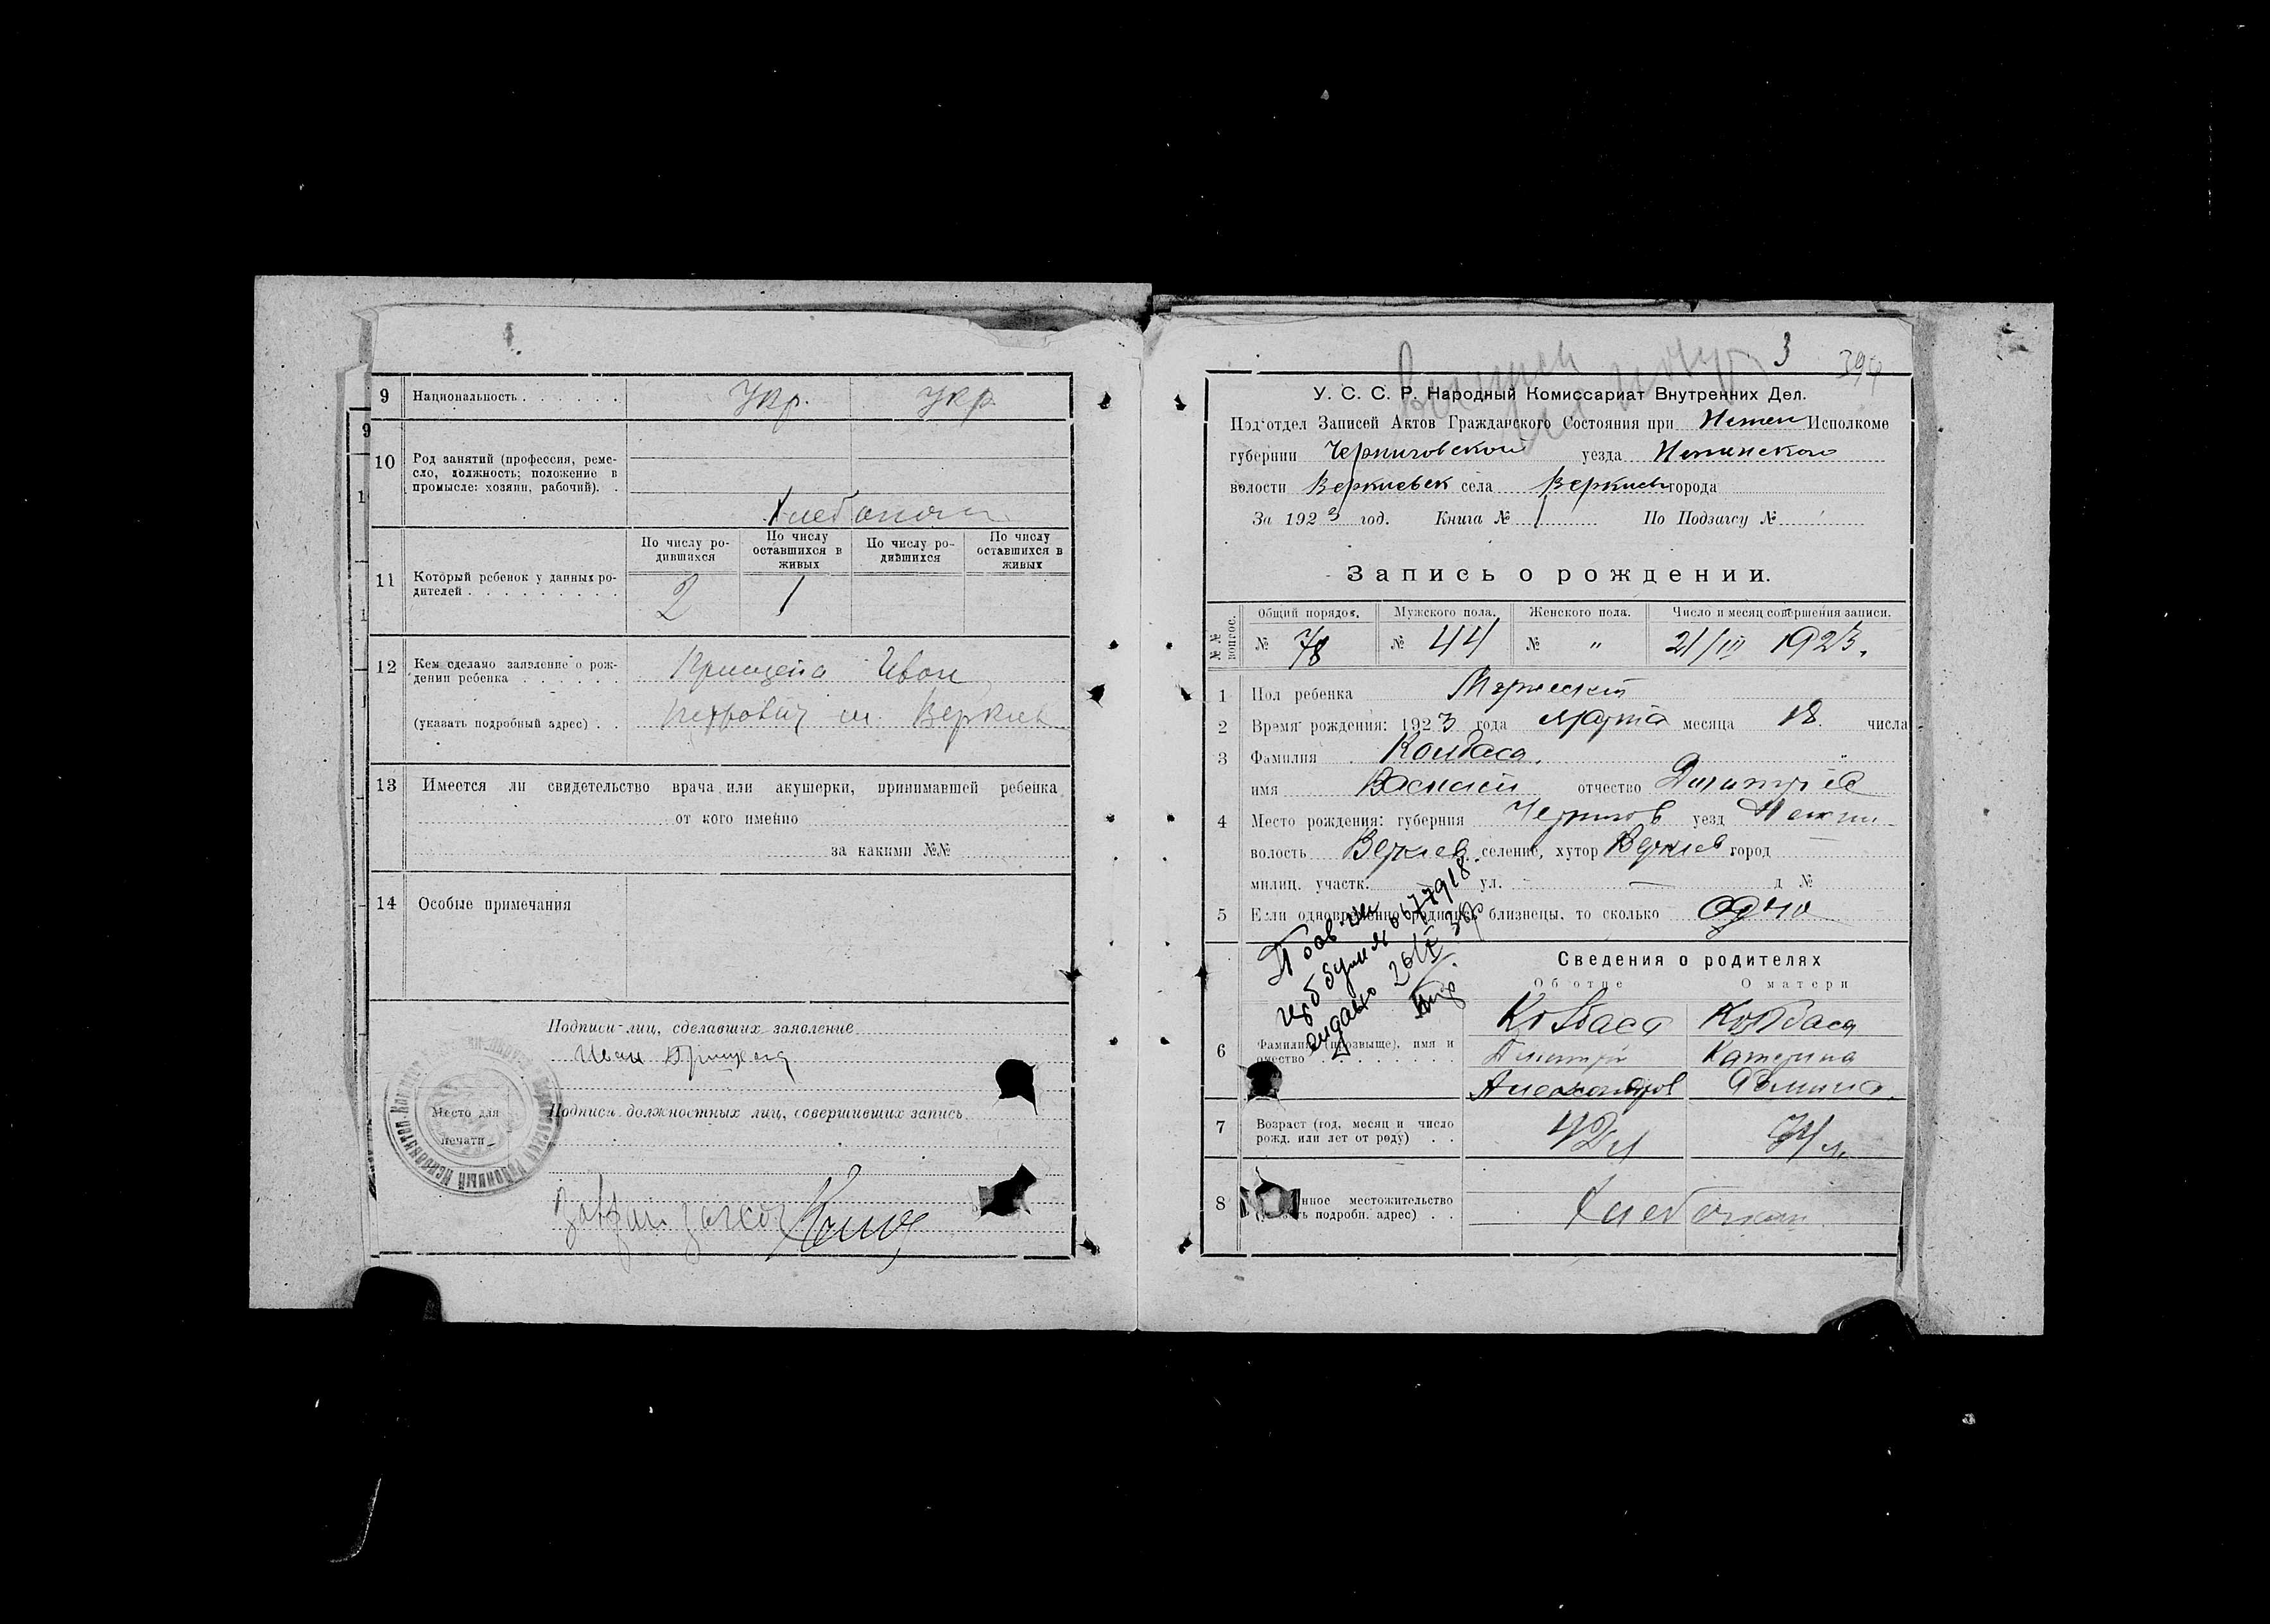 9 Национальность . . . . . . Укр. Укр.
10 Род занятий (профессия, ремесло, должность; положение в
промысле: хозяин, рабочий). .
По числу родившихся По числу оставшихся в живых По числу родившихся По числу оставшихся в живых
11 Который ребенок у данных родителей . . . . . . . . . 2 1
12 Кем сделано заявление о рождении ребенка . . . . . . Прищепа Иван
(указать подробный адрес) . . Петрович м. Веркиев
13 Имеется ли свидетельство врача или акушерки, принимавшей ребенка
от кого именно
за какими №№
14 Особые примечания
Подписи лиц, сделавших заявление
Иван Прищепа
Место для
печати
Подписи должностных лиц, совершивших запись
3
394
У. С. С. Р. Народный Комиссариат Внутренних Дел.
Под'отдел Записей Актов Гражданского Состояния при Нежен Исполкоме
губернии Черниговской уезда Нежинского
волости Веркиевск села Веркиев города
За 1923 год. Книга № 1 По Подзагсу №
Запись о рождении.
№№ вопрос. Общий порядок. Мужского пола. Женского пола. Число и месяц совершения записи.
№ 78 № 44 № " 21/III 1923.
1 Пол ребенка Мужеский
2 Время рождения: 1923 года Марта месяца 18 числа
3 Фамилия Колбаса
имя отчество Дмитрие
4 Место рождения: губерния Чернигов уезд Нежин
волость Веркиев. селение, хутор Веркиев город
милиц. участк. ул. — д №
5 Если одновременно родились близнецы, то сколько одно
№ 0677918
видано 26/X
Сведения о родителях
Об отце О матери
Колбаса Колбаса
6 Фамилия (прозвище), имя и
Дмитрий Катерина
Александров
7 Возраст (год, месяц и число
рожд. или лет от роду) . .
8 местожительство
подробн. адрес) . .